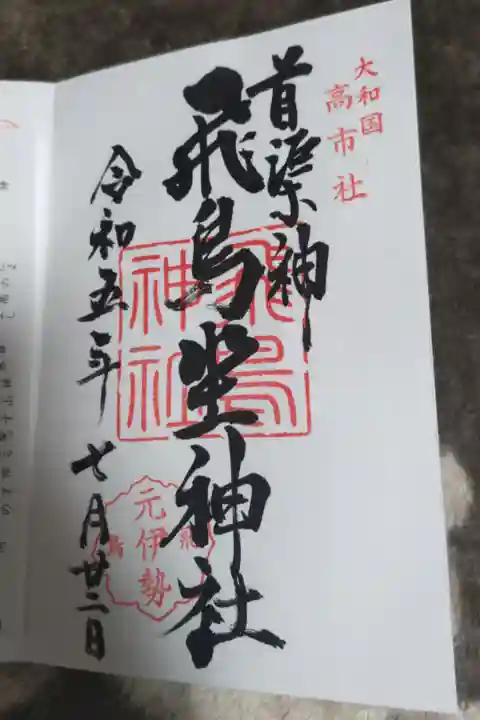 大和国
高市社
首渠神
飛鳥坐神社
飛鳥
神社
元伊勢
飛鳥
令和五年七月廿二日